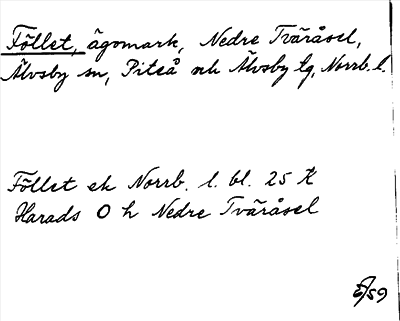 Föllet, ägomark, Nedre Tväråsel,
Älvsby sn, Piteå och Älvsby tg, Norrb. l.
Föllet ek Norrb. l. bl. 25 K
Harads O h Nedre Tväråsel
E/59